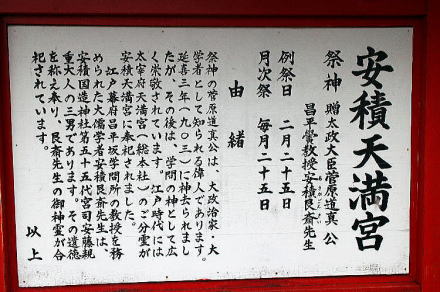 安積天満宮
祭神 贈太政大臣菅原道真 公
昌平黌教授安積艮斎先生
例祭日 二月二十五日
月次祭 毎月二十五日
由緒
祭神の菅原道真公は、大政治家・大
学者として知られる偉人であります。
延喜三年(九〇三)に神去られまし
たが、その後は、学問の神として広
く崇敬されています。江戸時代には
太宰府天満宮(総本社)のご分霊が
安積天満宮に奉祀されました。
江戸幕府昌平坂学問所の教授を務
められた大儒学者安積艮斎先生は、
安積国造神社第五十五代宮司安藤親
重大人の三男であります。その遺徳
を称え奉り、艮斎先生の御神霊が合
祀されています。
以上